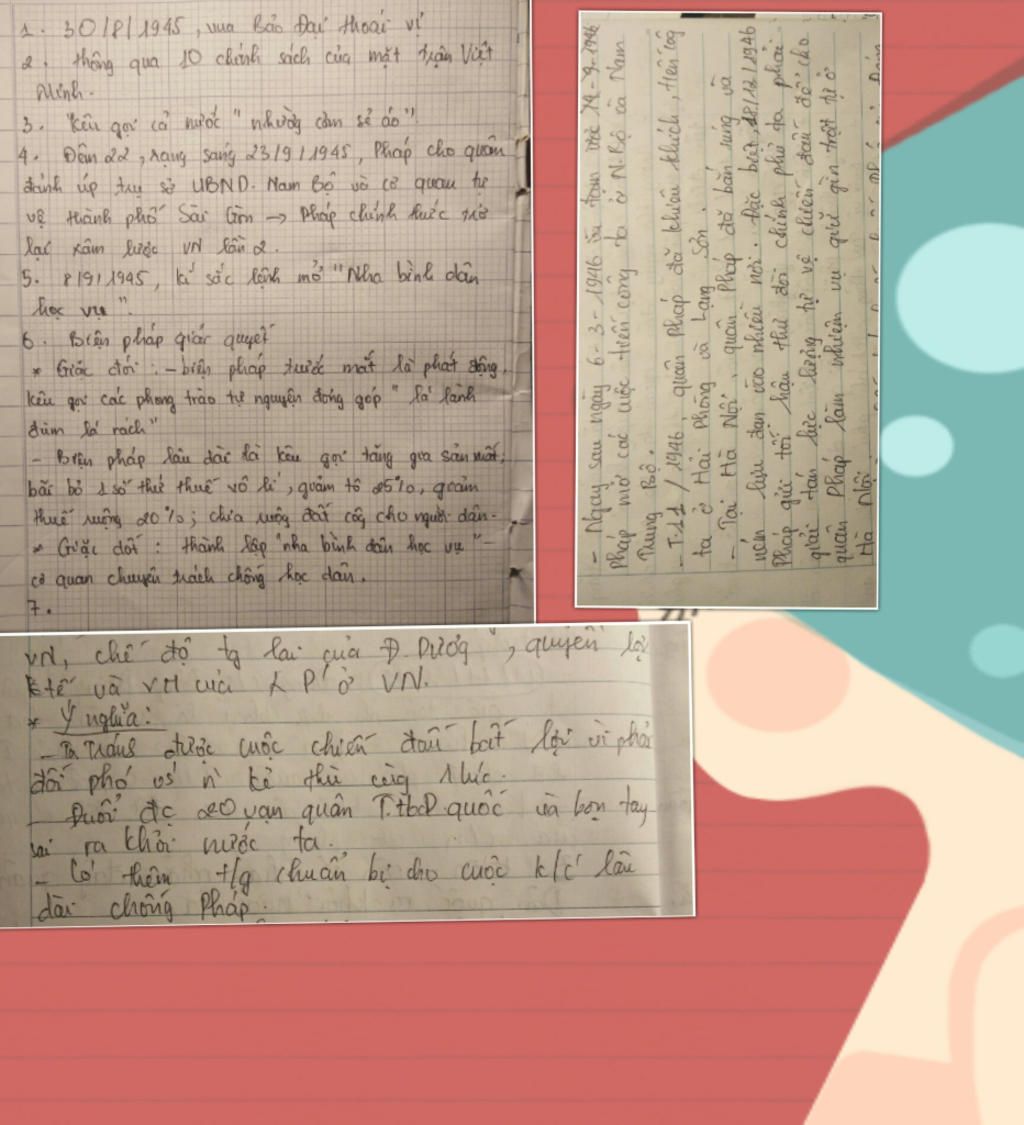 1. 30/8/1945, vua Bảo Đại thoái vị
2. thông qua 10 chính sách của mặt trận Việt
Minh.
3. "Kêu gọi cả nước "nhường cơm sẻ áo"!
4. Đêm 22, rạng sáng 23/9/1945, Pháp cho quân
đánh úp trụ sở UBND. Nam Bộ và cơ quan tự
vệ thành phố Sài Gòn → Pháp chính thức trở
lại xâm lược VN lần 2.
5. 8/9/1945, kí sắc lệnh mở "Nha bình dân
học vụ".
6. Biện pháp giải quyết
* Giặc đói: - biện pháp trước mắt là phát động,
kêu gọi các phong trào tự nguyện đóng góp "lá lành
đùm lá rách"
- Biện pháp lâu dài là kêu gọi tăng gia sản xuất;
bãi bỏ 1 số thứ thuế vô lí, giảm tô 25%, giảm
thuế ruộng 20%; chia ruộng đất công cho người dân.
* Giặc dốt: thành lập "nha bình dân học vụ" -
cơ quan chuyên trách chống học dân.
7.
- Ngay sau ngày 6-3-1946 và tạm ước 14-9-1946
Pháp mở các cuộc tiến công ta ở N.Bộ và Nam
Trung Bộ.
- T.11/1946, quân Pháp đã khiêu khích, tiến công
ta ở Hải Phòng và Lạng Sơn.
- Tại Hà Nội, quân Pháp đã bắn súng và
ném lựu đạn vào nhiều nơi. Đặc biệt, 18/12/1946
Pháp gửi tối hậu thư đòi chính phủ ta phải
giải tán lực lượng tự vệ chiến đấu để cho
quân Pháp làm nhiệm vụ giữ gìn trật tự ở
Hà Nội
VN, chế độ tg lai của Đ.Dương", quyền lợi
k tế và VH của P ở VN.
* Ý nghĩa:
- Ta tránh được cuộc chiến đấu bất lợi vì phải
đối phó vs n kẻ thù cùng 1 lúc.
- Đuổi đc 20 vạn quân T.H quốc và bọn tay
sai ra khỏi nước ta.
- Có thêm t/g chuẩn bị cho cuộc k/c lâu
dài chống Pháp.